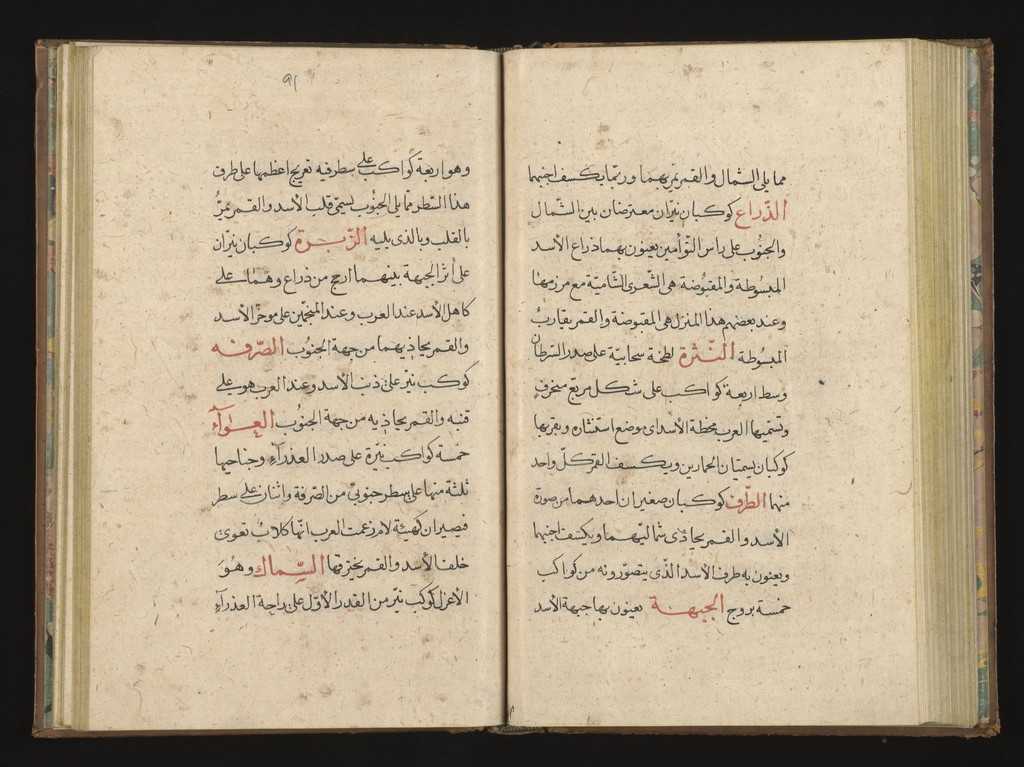 مما يلى الشمال والقمر يمر بهما وربما يكسف اجنبهما
الذراع كوكبان نيران معترضان بين الشمال
والجنوب على راس التوأمين يعنون بهما ذراع الأسد
المبسوطة والمقبوضة هى الشعرى الشامية مع مرزمها
وعند بعضهم هذا المنزل هى المقبوضة والقمر يقارب
المبسوطة النثرة لطخة سحابية على صدر السرطان
وسط اربعة كواكب على شكل مربع منحرف
وتسميها العرب مخطة الأسد اى موضع استنثاره وبقربها
كوكبان يسميان الحمارين ويكسف القمر كل واحد
منها الطرف كوكبان صغيران احدهما من صورة
الأسد والقمر يحاذى شماليهما ويكسف اجنبهما
ويعنون به طرف الأسد الذى يتصورونه من كواكب
خمسة بروج الجبهة يعنون بها جبهة الأسد
٩١
وهو اربعة كواكب على سطر فيه تعريج اعظمها على طرف
هذا السطر مما يلى الجنوب يسمى قلب الأسد والقمر يمر
بالقلب وبالذى يليه الزبرة كوكبان نيران
على أثر الجبهة بينهما ارجح من ذراع وهما على
كاهل الأسد عند العرب وعند المنجمين على موخر الأسد
والقمر يحاذيهما من جهة الجنوب الصرفه
كوكب نير على ذنب الأسد وعند العرب هو على
قنبه والقمر يحاذيه من جهة الجنوب العواء
خمسة كواكب نيرة على صدر العذراء وجناحيها
ثلثة منها على سطر جنوبى من الصرفة واثنان على سطر
فيصيران كهيئة لام زعمت العرب انها كلاب تعوى
خلف الأسد والقمر يخترقها السماك وهو
الأعزل كوكب نير من القدر الأول على راحة العذراء